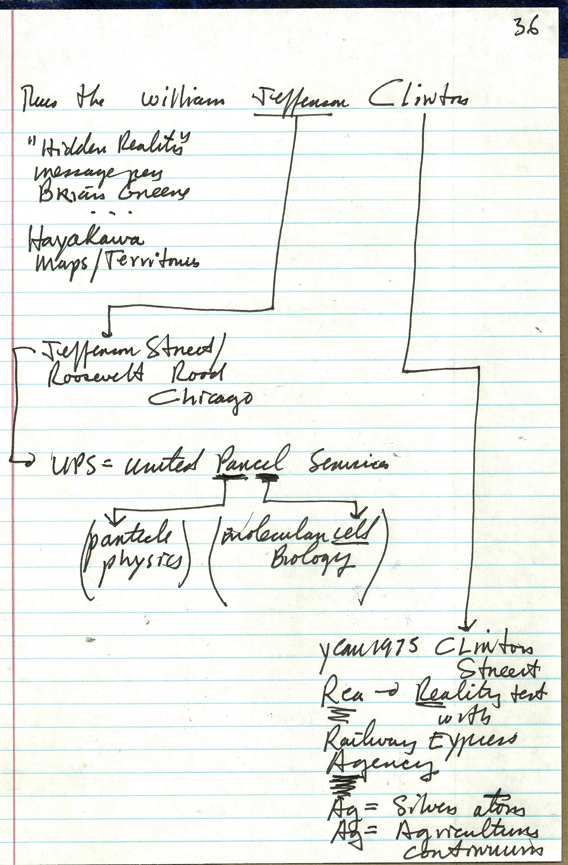 36
Thus the William Jefferson Clinton
"Hidden Reality"
message per
Brian Greene
...
Hayakawa
Maps/Territories
Jefferson Street/
Roosevelt Road
Chicago
UPS = United Parcel Services
(particle
physics)
(molecular cell
Biology)
year 1975 Clinton
Street
Rea → Reality test
with
Railway Express
Agency
Ag = Silver atom
Ag = Agriculture
continuum